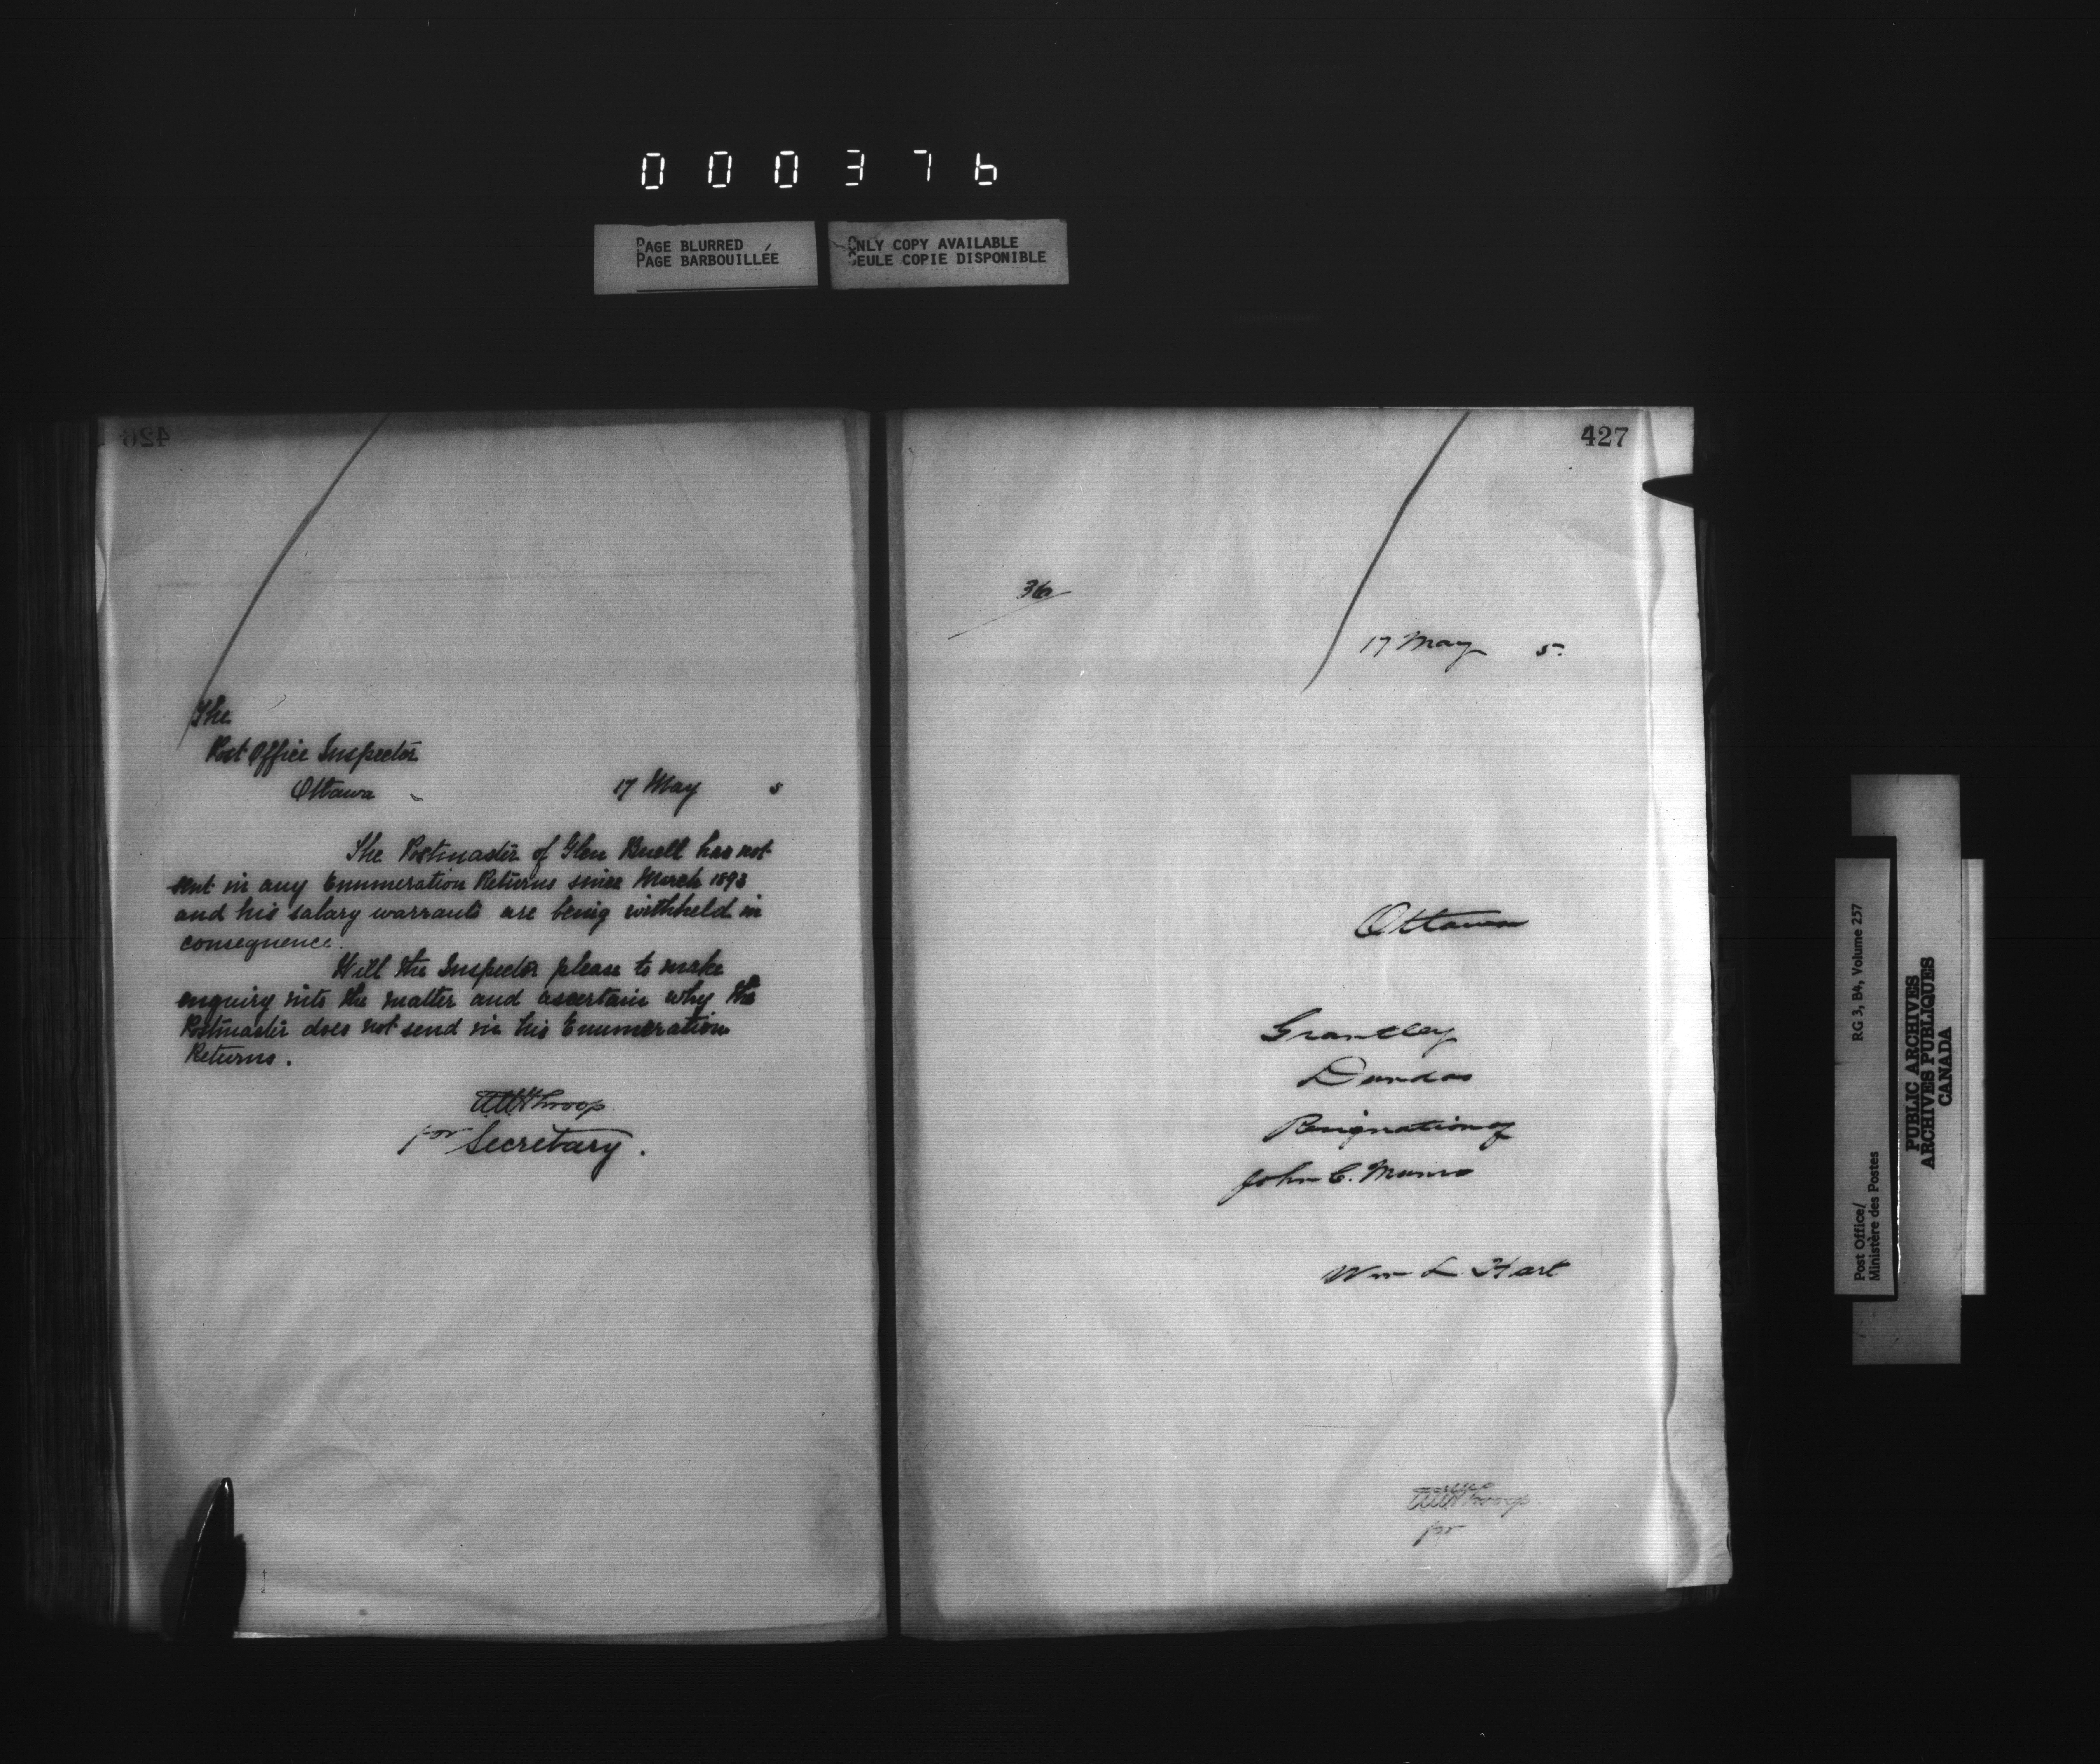 000376
PAGE BLURRED
PAGE BARBOUILLÉE
ONLY COPY AVAILABLE
SEULE COPIE DISPONIBLE
426
The
Post Office Inspector
Ottawa
17 May 5
The Postmaster of Glen Buell has not
sent in any Enumeration Returns since March 1893
and his salary warrants are being withheld in
consequence.
Will the Inspector please to make
enquiry into the matter and ascertain why the
Postmaster does not send in his Enumeration
Returns.
Throop
for Secretary.
427
36
17 May 5.
Ottawa
Grantley
Dundas
Resignation of
John C. Munro
Wm L. Hart
Throop
for
Post Office/
Ministère des Postes
RG 3, B4, Volume 257
PUBLIC ARCHIVES
ARCHIVES PUBLIQUES
CANADA